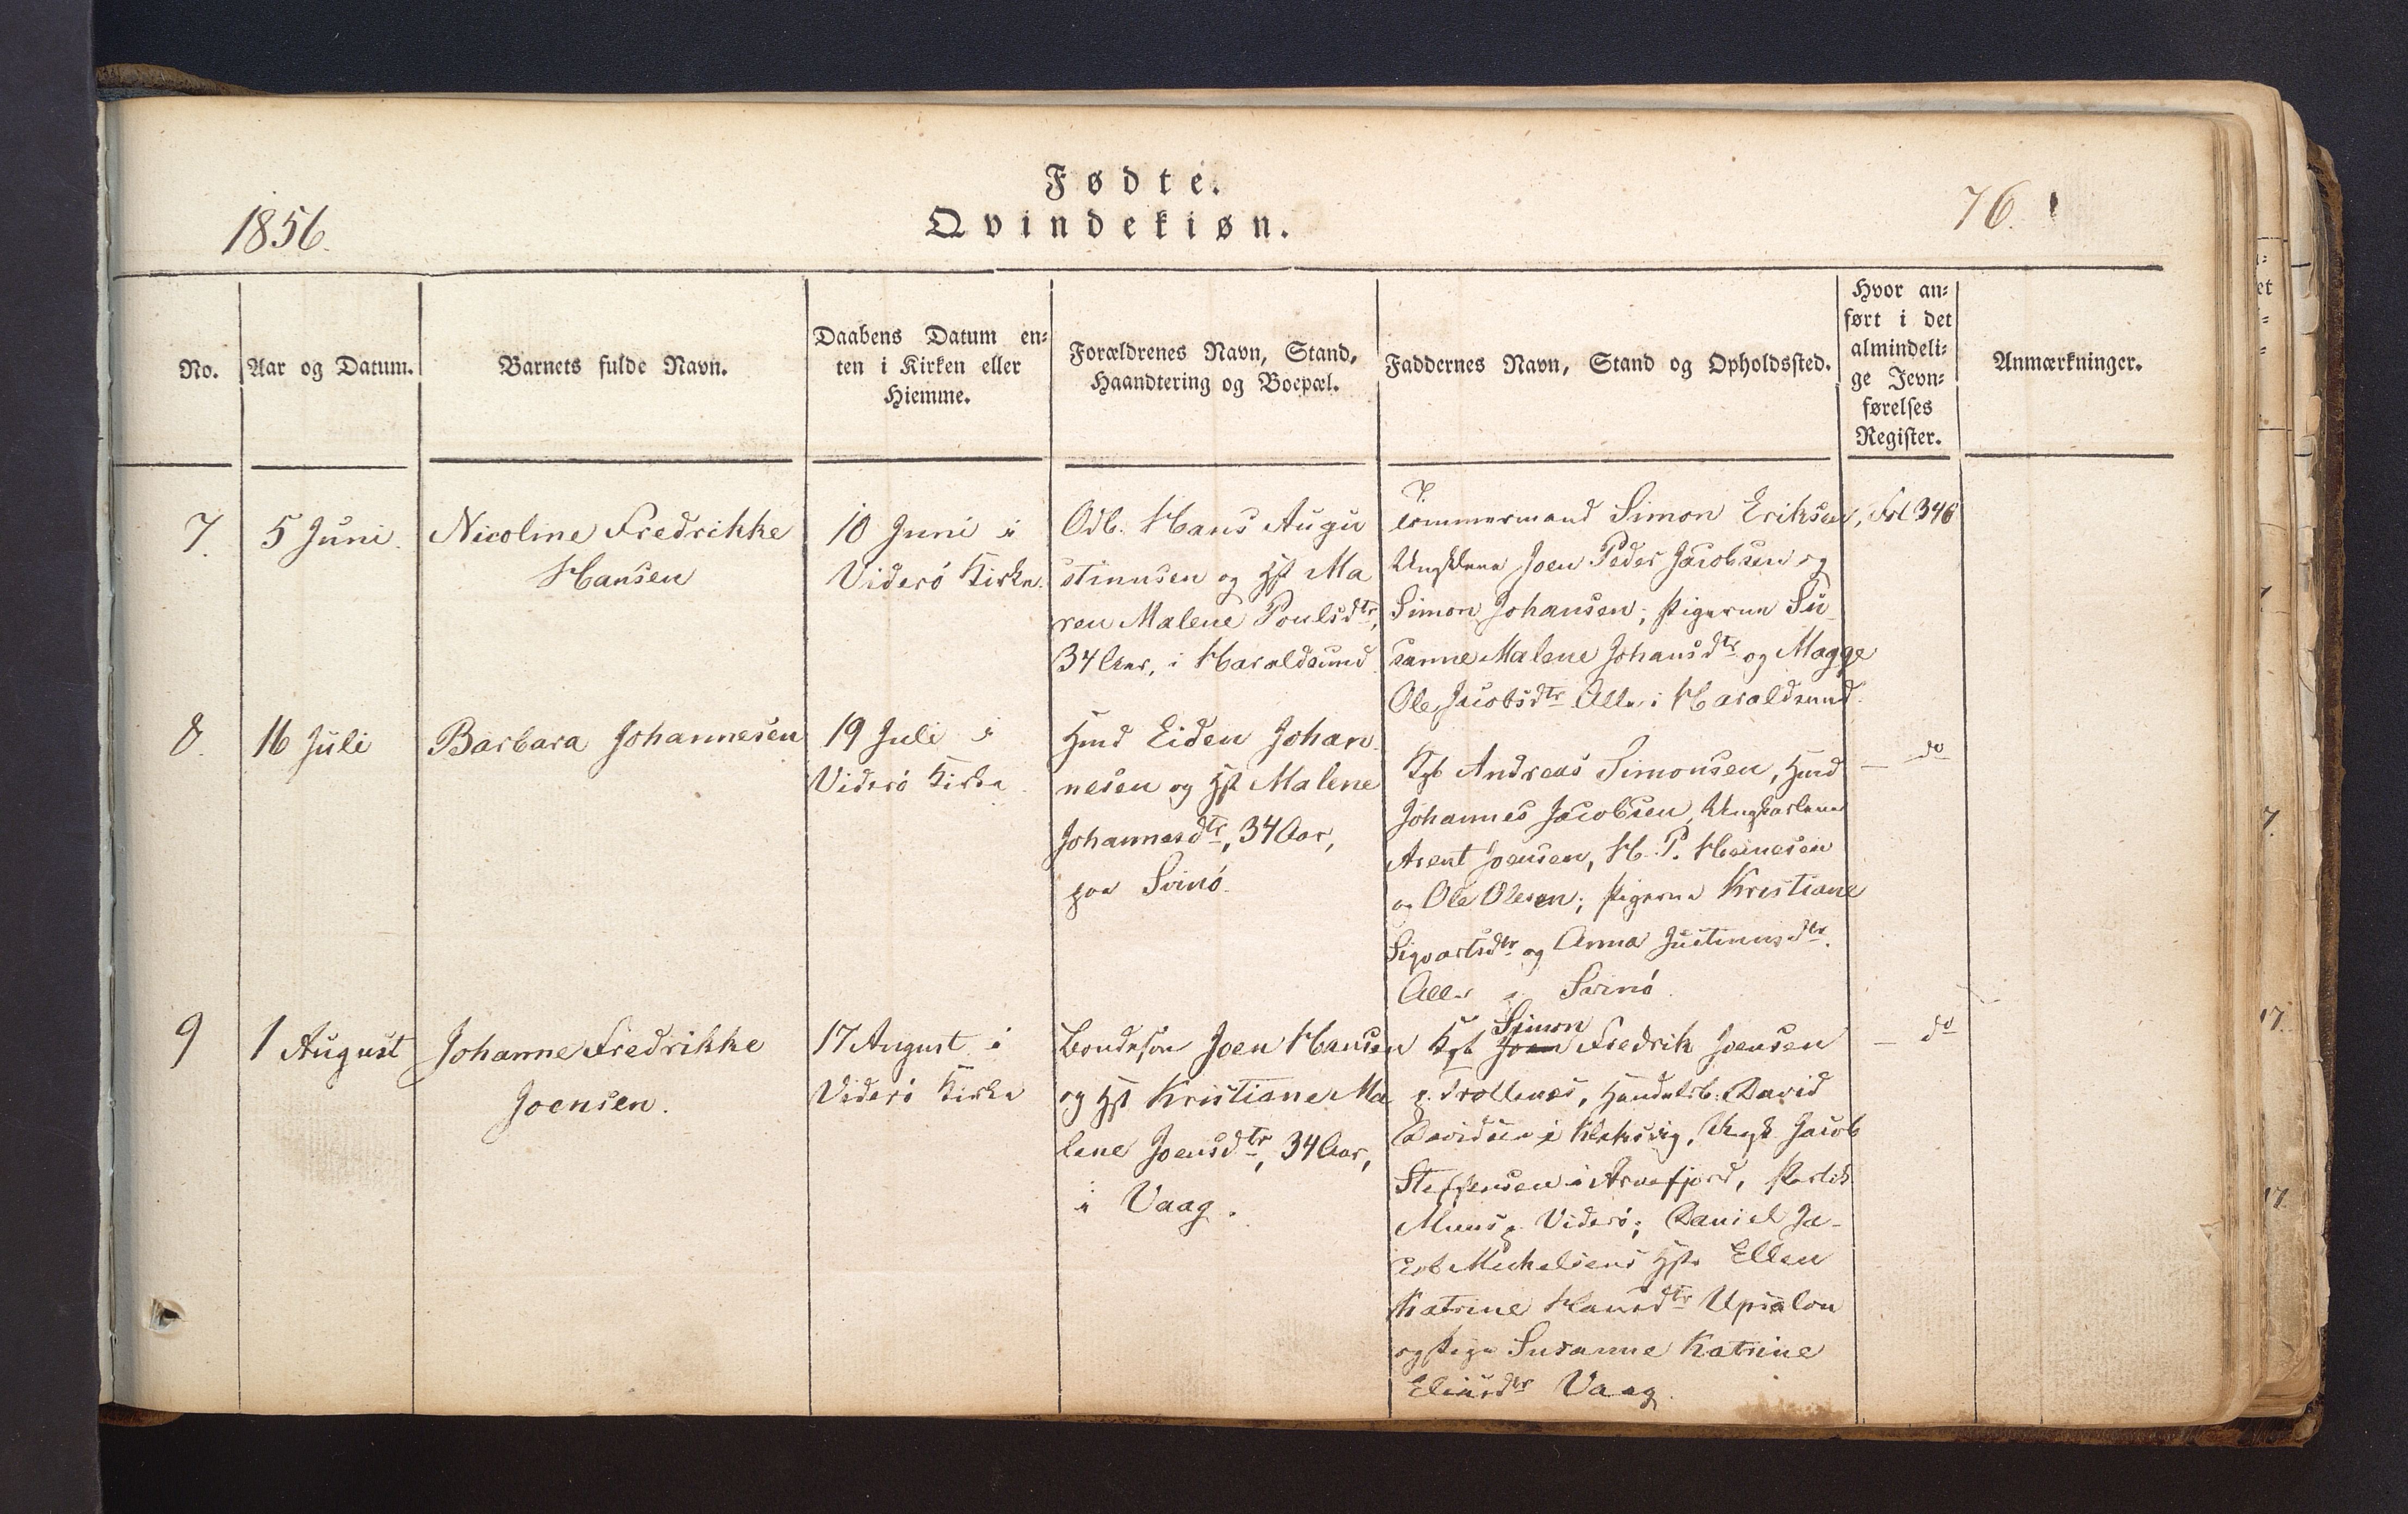 Fødte.
Qvindekiøn.
1856.
76.
No.
Aar og Datum.
Barnets fulde Navn.
Daabens Datum en-
ten i Kirken eller
Hiemme.
Forældrenes Navn, Stand,
Haandtering og Boepæl.
Faddernes Navn, Stand og Opholdssted.
Hvor an-
ført i det
almindeli-
ge Jevn-
førelses
Register.
Anmærkninger.
7.
5 Juni.
Nicoline Fredrikke
Hansen
10 Juni i
Viderö Kirke.
Odb. Hans Augu
stinusen og Hst Ma
ren Malene Poulsdtr,
34 Aar, i Haraldsund
Tømmermand Simon Eriksen,
Ungkarlene Joen Peder Jacobsen og
Simon Johansen; Pigerne Su
sanne Malene Johansdtr og Magge
Ole Jacobsdtr Alle i Haraldsund.
Fol 346
8.
16 Juli
Barbara Johannesen
19 Juli i
Viderö Kirke
Hmd Eiden Johan
nesen og Hst Malene
Johannesdtr, 34 Aar,
paa Svinö.
Kgb Andreas Simonsen, Hmd
Johannes Jacobsen, Ungkarlene
Arent Joensen, H. P. Heinesen
og Ole Olesen; Pigerne Kristiane
Sigvartsdtr og Anna Justinusdtr.
Alle p. Svinö.
— do
9
1 August
Johanne Fredrikke
Joensen.
17 August i
Viderö Kirke
Bondesøn Joen Hansen
og Hst Kristiane Ma
lene Joensdtr, 34 Aar,
i Vaag.
Simon
Kgb Joen Fredrik Joensen
p. Trollenæs, Handelsb. David
Davidsen i Klaksvig, Ungk Jacob
Steffensen i Arnefjord,
p. Viderö; Daniel Ja-
cob Michelsens Hst. Ellen
Katrine Hansdtr Upsalon
og Pige Susanne Katrine
Eliasdtr Vaag.
— do